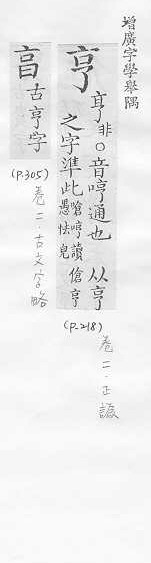 增廣字學舉隅
亨 亨非○音哼通也 从亨
之字準此 嗆哼讀愚怯皃 傖亨
(P.218)
卷二.正譌
亯 古亨字
(P.305)
卷二.古文字略